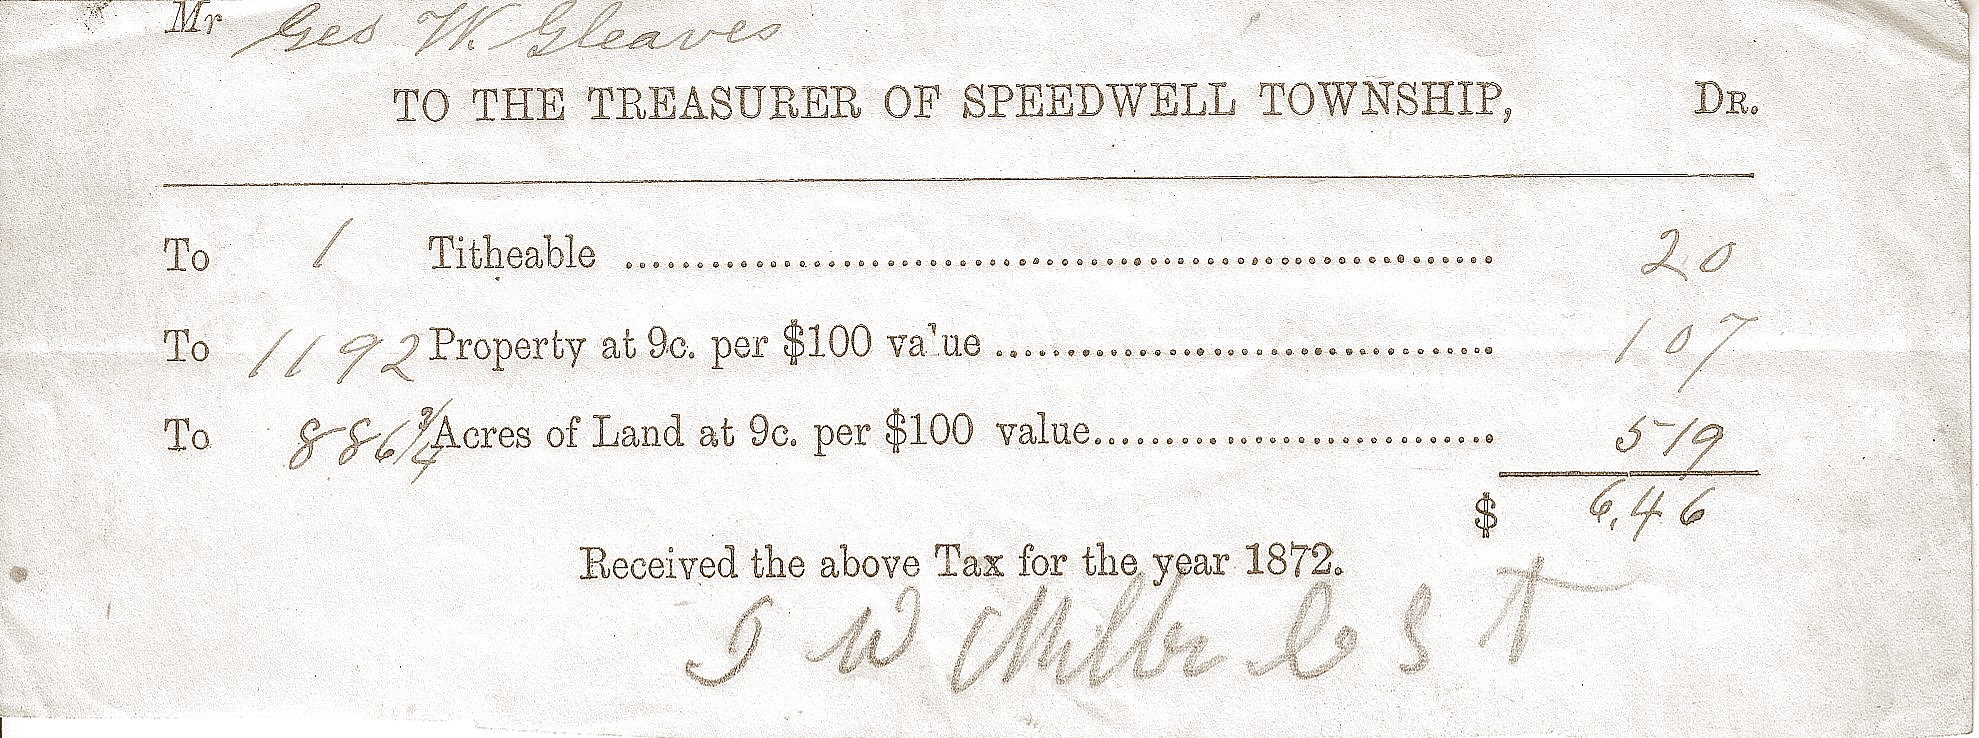 Mr Geo W. Gleaves
TO THE TREASURER OF SPEEDWELL TOWNSHIP, DR.
To 1 Titheable ........ 20
To 1192 Property at 9c. per $100 value ........ 107
To 886 3/4 Acres of Land at 9c. per $100 value........ 519
$ 6.46
Received the above Tax for the year 1872.
W Miller S T